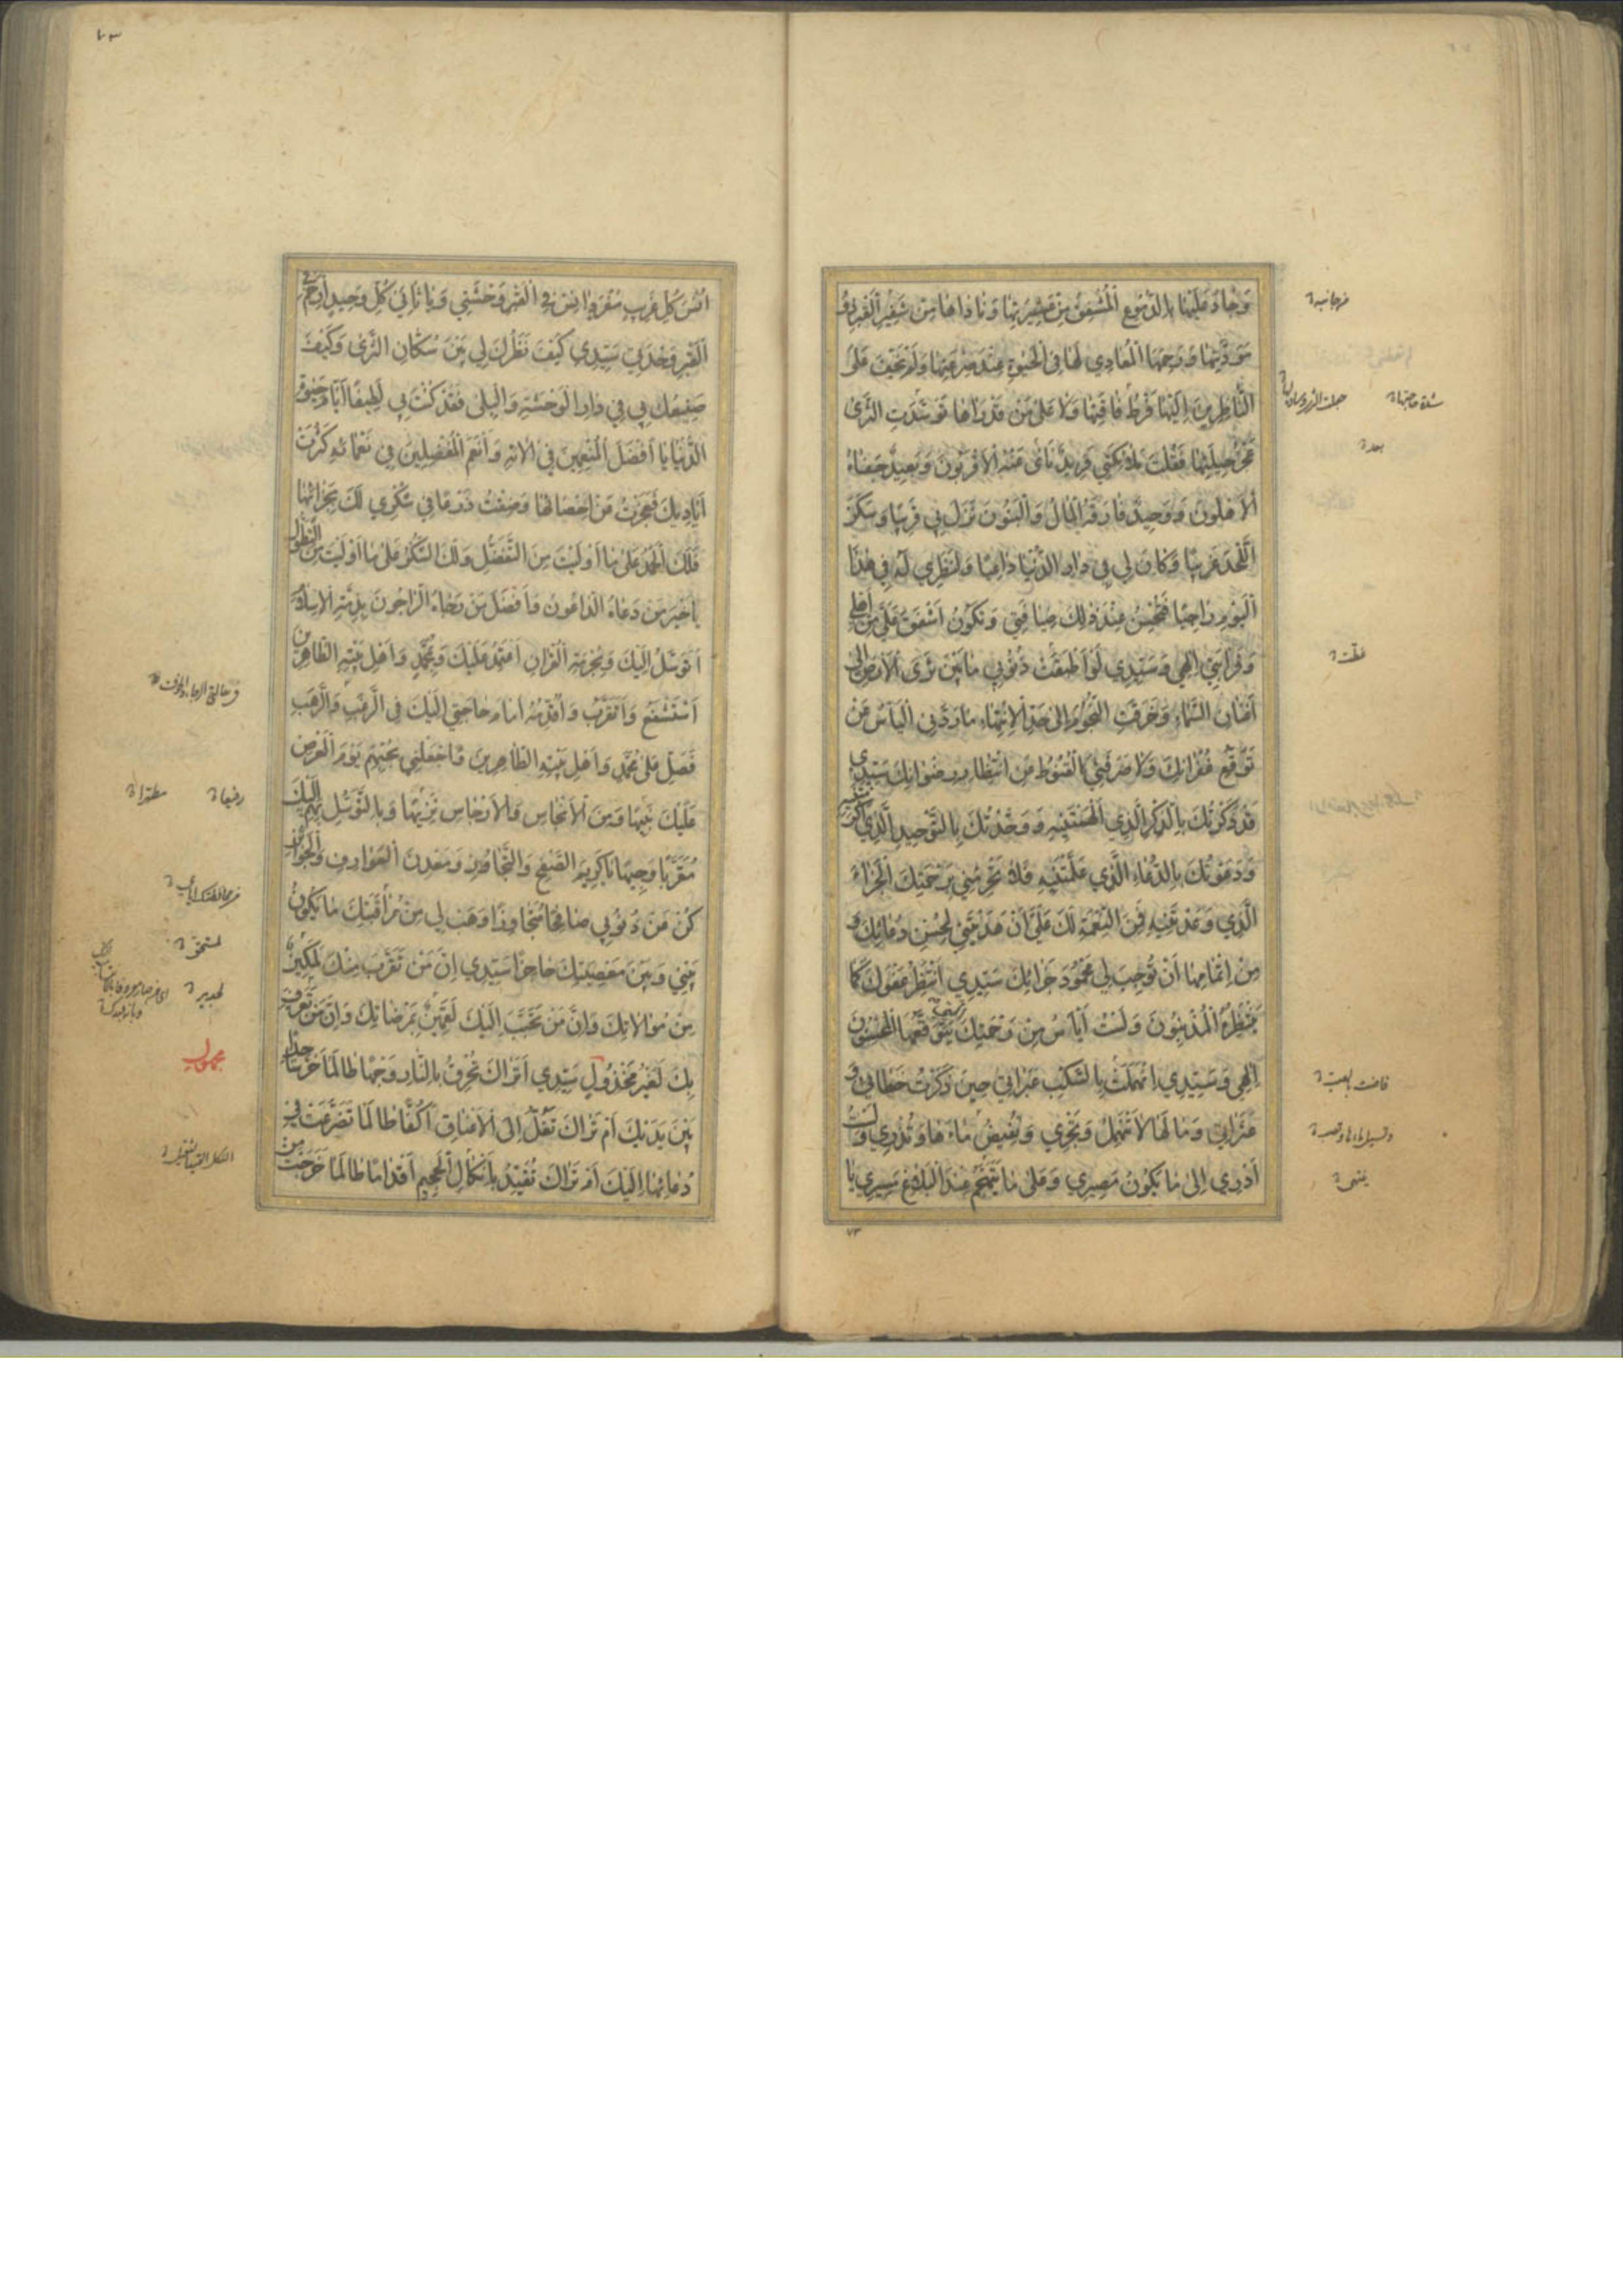 وَجَادَ عَلَيْهَا بِالدُّمُوعِ الْمُشْفِقُ مِنْ عَشِيرَتِهَا وَنَادَاهَا مِنْ شَفِيرِ الْقَبْرِ ذَوُو
مَوَدَّتِهَا وَرَحِمَهَا الْمُعَادِي لَهَا فِي الْحَيٰوةِ عِنْدَ صَرْعَتِهَا وَلَمْ يَخْفَ عَلَى
النَّاظِرِينَ إِلَيْهَا فَرْطُ فَاقَتِهَا وَلَا عَلَى مَنْ قَدْ رَاهَا تَوَسَّدَتِ الثَّرَى
عَجْزُ حِيلَتِهَا فَقُلْتَ مَلَائِكَتِي فَرِيدٌ نَأَى عَنْهُ الْأَقْرَبُونَ وَبَعِيدٌ جَفَاهُ
الْأَهْلُونَ وَوَحِيدٌ فَارَقَهُ الْمَالُ وَالْبَنُونَ نَزَلَ بِي قَرِيبًا وَسَكَنَ
اللَّحْدَ غَرِيبًا وَكَانَ لِي فِي دَارِ الدُّنْيَا دَاعِيًا وَلِنَظَرِي لَهُ فِي هٰذَا
الْيَوْمِ رَاجِيًا فَتُحْسِنُ عِنْدَ ذٰلِكَ ضِيَافَتِي وَتَكُونُ أَشْفَقَ عَلَيَّ مِنْ أَهْلِي
وَقَرَابَتِي إِلٰهِي وَسَيِّدِي لَوْ أَطْبَقَتْ ذُنُوبِي مَا بَيْنَ ثَرَى الْأَرْضِ إِلَى
أَعْنَانِ السَّمَاءِ وَخَرَقَتِ النُّجُومَ إِلَى حَدِّ الْاِنْتِهَاءِ مَا رَدَّنِي الْيَأْسُ عَنْ
تَوَقُّعِ غُفْرَانِكَ وَلَا صَرَفَنِي الْقُنُوطُ عَنِ انْتِظَارِ رِضْوَانِكَ سَيِّدِي
قَدْ ذَكَرْتُكَ بِالذِّكْرِ الَّذِي أَلْهَمْتَنِيهِ وَوَحَّدْتُكَ بِالتَّوْحِيدِ الَّذِي أَكْرَمْتَنِيهِ
وَدَعَوْتُكَ بِالدُّعَاءِ الَّذِي عَلَّمْتَنِيهِ فَلَا تَحْرِمْنِي بِرَحْمَتِكَ الْجَزَاءَ
الَّذِي وَعَدْتَنِيهِ فَمِنَ النِّعْمَةِ لَكَ عَلَيَّ أَنْ هَدَيْتَنِي لِحُسْنِ دُعَائِكَ وَ
مِنْ إِتْمَامِهَا أَنْ تُوجِبَ لِي مَحْمُودَ جَزَائِكَ سَيِّدِي أَنْتَظِرُ عَفْوَكَ كَمَا
يَنْتَظِرُهُ الْمُذْنِبُونَ وَلَسْتُ أَيْأَسُ مِنْ رَحْمَتِكَ الَّتِي يَتَوَقَّعُهَا الْمُحْسِنُونَ
إِلٰهِي وَسَيِّدِي انْهَمَلَتْ بِالسَّكْبِ عَبَرَاتِي حِينَ ذَكَرْتُ خَطَائِي وَ
عَثَرَاتِي وَمَا لَهَا لَا تَنْهَمِلُ وَتَجْرِي وَتُفِيضُ مَاءَهَا وَتُذْرِي وَلَسْتُ
أَدْرِي إِلَى مَا يَكُونُ مَصِيرِي وَعَلَى مَا يَتَهَجَّمُ عِنْدَ الْبَلَاغِ مَسِيرِي يَا
٧٣
أُنْسَ كُلِّ غَرِيبٍ مُفْرَدٍ آنِسْ فِي الْقَبْرِ وَحْشَتِي وَيَا ثَانِيَ كُلِّ وَحِيدٍ ارْحَمْ فِي
الْقَبْرِ وَحْدَتِي سَيِّدِي كَيْفَ نَظَرُكَ لِي بَيْنَ سُكَّانِ الثَّرَى وَكَيْفَ
صَنِيعُكَ بِي فِي دَارِ الْوَحْشَةِ وَالْبِلَى فَقَدْ كُنْتَ بِي لَطِيفًا أَيَّامَ حَيٰوةِ
الدُّنْيَا يَا أَفْضَلَ الْمُنْعِمِينَ فِي آلَائِهِ وَأَنْعَمَ الْمُفْضِلِينَ فِي نَعْمَائِهِ كَثُرَتْ
أَيَادِيكَ فَعَجَزْتُ عَنْ إِحْصَائِهَا وَضِقْتُ ذَرْعًا فِي شُكْرِي لَكَ بِجَزَائِهَا
فَلَكَ الْحَمْدُ عَلَى مَا أَوْلَيْتَ مِنَ التَّفَضُّلِ وَلَكَ الشُّكْرُ عَلَى مَا أَبْلَيْتَ مِنَ التَّطَوُّلِ
يَا خَيْرَ مَنْ دَعَاهُ الدَّاعُونَ وَأَفْضَلَ مَنْ رَجَاهُ الرَّاجُونَ بِذِمَّةِ الْإِسْلَامِ
أَتَوَسَّلُ إِلَيْكَ وَبِحُرْمَةِ الْقُرْآنِ أَعْتَمِدُ عَلَيْكَ وَبِمُحَمَّدٍ وَأَهْلِ بَيْتِهِ الطَّاهِرِينَ
أَسْتَشْفِعُ وَأَتَقَرَّبُ وَأُقَدِّمُهُ أَمَامَ حَاجَتِي إِلَيْكَ فِي الرَّغَبِ وَالرَّهَبِ
فَصَلِّ عَلَى مُحَمَّدٍ وَأَهْلِ بَيْتِهِ الطَّاهِرِينَ وَاجْعَلْنِي بِحُبِّهِمْ يَوْمَ الْعَرْضِ
عَلَيْكَ نَبِيهًا وَمِنَ الْأَنْجَاسِ وَالْأَرْجَاسِ نَزِيهًا وَبِالتَّوَسُّلِ بِهِمْ إِلَيْكَ
مُقَرَّبًا وَجِيهًا يَا كَرِيمَ الصَّفْحِ وَالتَّجَاوُزِ وَمَعْدِنَ الْعَوَارِفِ وَالْجَوَائِزِ
كُنْ عَنْ ذُنُوبِي صَافِحًا مُتَجَاوِزًا وَهَبْ لِي مِنْ مُرَاقَبَتِكَ مَا يَكُونُ
بَيْنِي وَبَيْنَ مَعْصِيَتِكَ حَاجِزًا سَيِّدِي إِنَّ مَنْ تَقَرَّبَ مِنْكَ لَمَكِينٌ
مِنْ مُوَالَاتِكَ وَإِنَّ مَنْ تَحَبَّبَ إِلَيْكَ لَقَمِينٌ بِمَرْضَاتِكَ وَإِنَّ مَنْ تَعَرَّفَ
بِكَ لَغَيْرُ مَخْذُولٍ سَيِّدِي أَتَرَاكَ تُحْرِقُ بِالنَّارِ وَجْهًا طَالَمَا خَرَّ سَاجِدًا
بَيْنَ يَدَيْكَ أَمْ تَرَاكَ تَغُلُّ إِلَى الْأَعْنَاقِ أَكُفًّا طَالَمَا تَضَرَّعَتْ فِي
دُعَائِهَا إِلَيْكَ أَمْ تَرَاكَ تُقَيِّدُ بِأَنْكَالِ الْجَحِيمِ أَقْدَامًا طَالَمَا خَرَجَتْ مِنْ